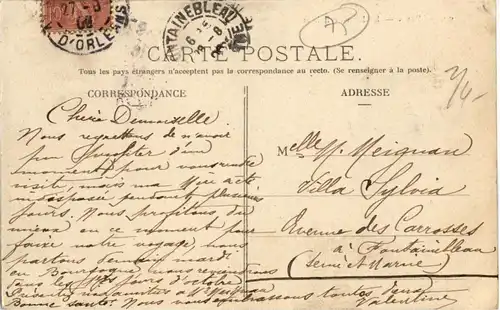 27
08
D'ORLEANS
FONTAINEBLEAU
CARTE POSTALE
Tous les pays étrangers n'acceptent pas la correspondance au recto. (Se renseigner à la poste).
CORRESPONDANCE
ADRESSE
Chère Demoiselle.
Nous regrettons de n'avoir
pu profiter d'un
moment pour vous rendre
visite, mais ma a été
indisposée pendant plusieurs
jours. Nous profitons du
mieux en ce moment pour
faire notre voyage, nous
partons demain mardi
en Bourgogne nous reviendrons
tous les jours d'octobre
amitiés à Mr Meignan
Bonne santé. Nous vous embrassons toutes deux
Valentine
Melle M. Meignan
Villa Sylvia
Avenue des Carrosses
à Fontainebleau
(Seine et Marne)